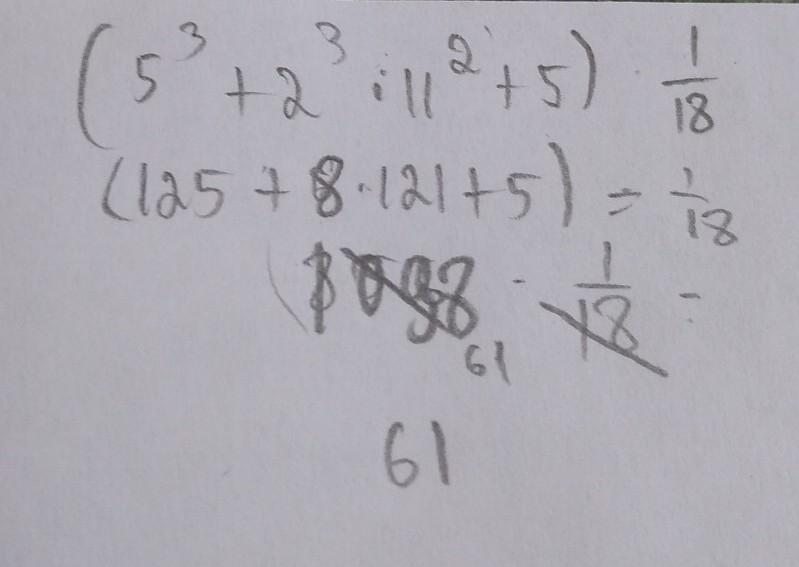 (5³ + 2³ · 11² + 5) · 1/18
(125 + 8 · 121 + 5) = 1/18
(1098 · 1/18 =
61
61